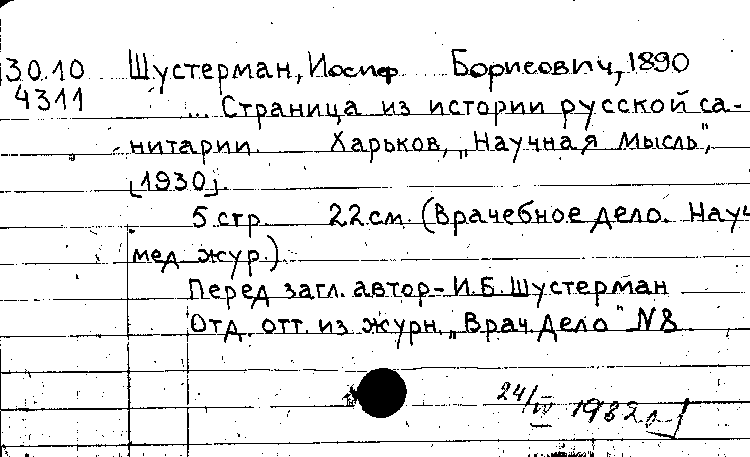 30.10 Шустерман, Иосиф Борисович, 1890
4311 ... Страница из истории русской са-
нитарии. Харьков, „Научная Мысль",
[1930].
5 стр. 22 см. (Врачебное дело. Науч
мед жур.)
Перед загл. автор - И.Б. Шустерман
Отд. отт. из журн. „Врач. Дело" N8
24/IV 1982